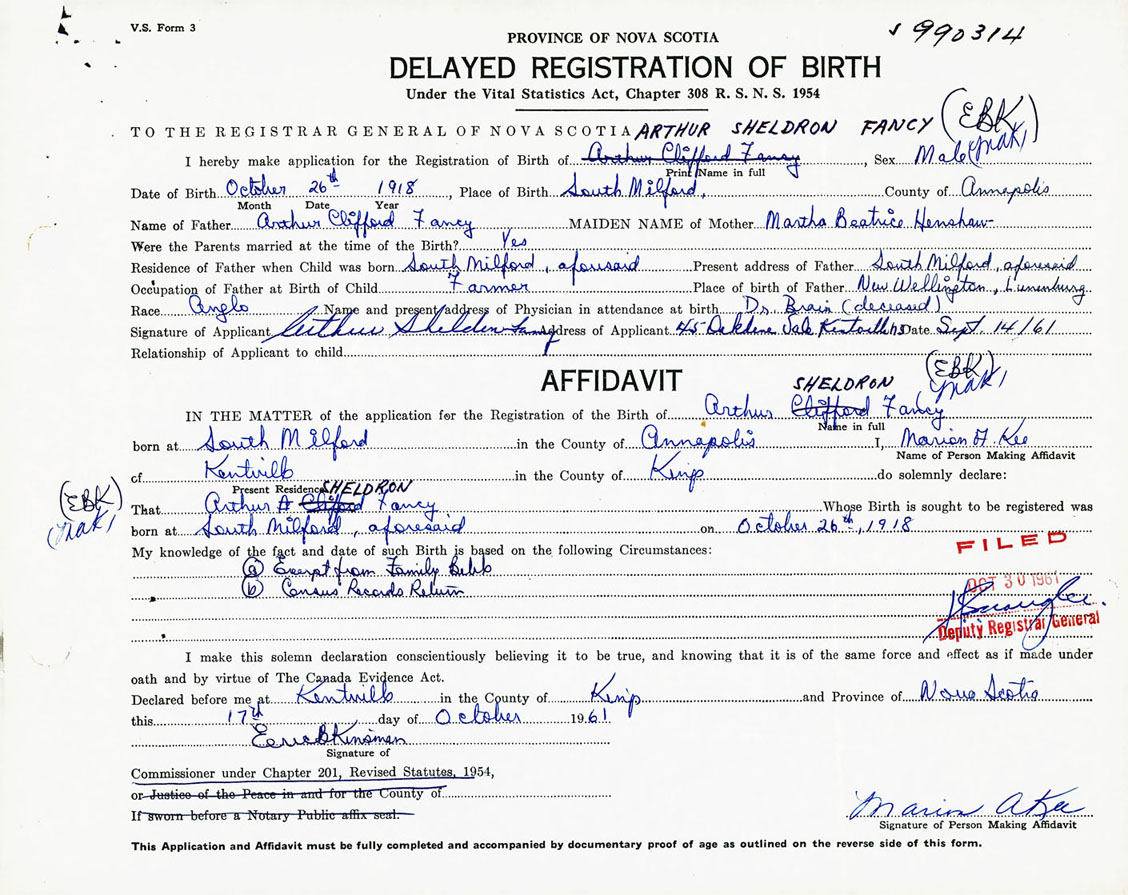 V.S. Form 3
990314
PROVINCE OF NOVA SCOTIA
DELAYED REGISTRATION OF BIRTH
Under the Vital Statistics Act, Chapter 308 R. S. N. S. 1954
TO THE REGISTRAR GENERAL OF NOVA SCOTIA ARTHUR SHELDRON FANCY (EBK)
I hereby make application for the Registration of Birth of Arthur Clifford Fancy, Sex Male
Print Name in full
Date of Birth October 26th 1918, Place of Birth South Milford, County of Annapolis
Month Date Year
Name of Father Arthur Clifford Fancy MAIDEN NAME of Mother Martha Beatrice Henshaw
Were the Parents married at the time of the Birth? Yes
Residence of Father when Child was born South Milford, aforesaid Present address of Father South Milford, aforesaid
Occupation of Father at Birth of Child Farmer Place of birth of Father New Wellington, Lunenburg
Race Anglo Name and present address of Physician in attendance at birth Dr. Brain (deceased)
Signature of Applicant Arthur Sheldon Fancy Address of Applicant 45 Oakdene Date Sept. 14/61
Relationship of Applicant to child
(EBK)
AFFIDAVIT
SHELDRON
IN THE MATTER of the application for the Registration of the Birth of Arthur Clifford Fancy
Name in full
born at South Milford in the County of Annapolis I, Marion A. Kee
Name of Person Making Affidavit
of Kentville in the County of Kings do solemnly declare:
Present Residence SHELDRON
(EBK)
That Arthur A Clifford Fancy Whose Birth is sought to be registered was
born at South Milford, aforesaid on October 26th, 1918
My knowledge of the fact and date of such Birth is based on the following Circumstances:
FILED
(a) Exerpt from Family Bible
OCT 30 1961
(b) Census Records Return
Deputy Registrar General
I make this solemn declaration conscientiously believing it to be true, and knowing that it is of the same force and effect as if made under
oath and by virtue of The Canada Evidence Act.
Declared before me at Kentville in the County of Kings and Province of Nova Scotia
this 17th day of October 1961
Eric B Kinsman
Signature of
Commissioner under Chapter 201, Revised Statutes, 1954,
or Justice of the Peace in and for the County of
If sworn before a Notary Public affix seal.
Marion A Kee
Signature of Person Making Affidavit
This Application and Affidavit must be fully completed and accompanied by documentary proof of age as outlined on the reverse side of this form.